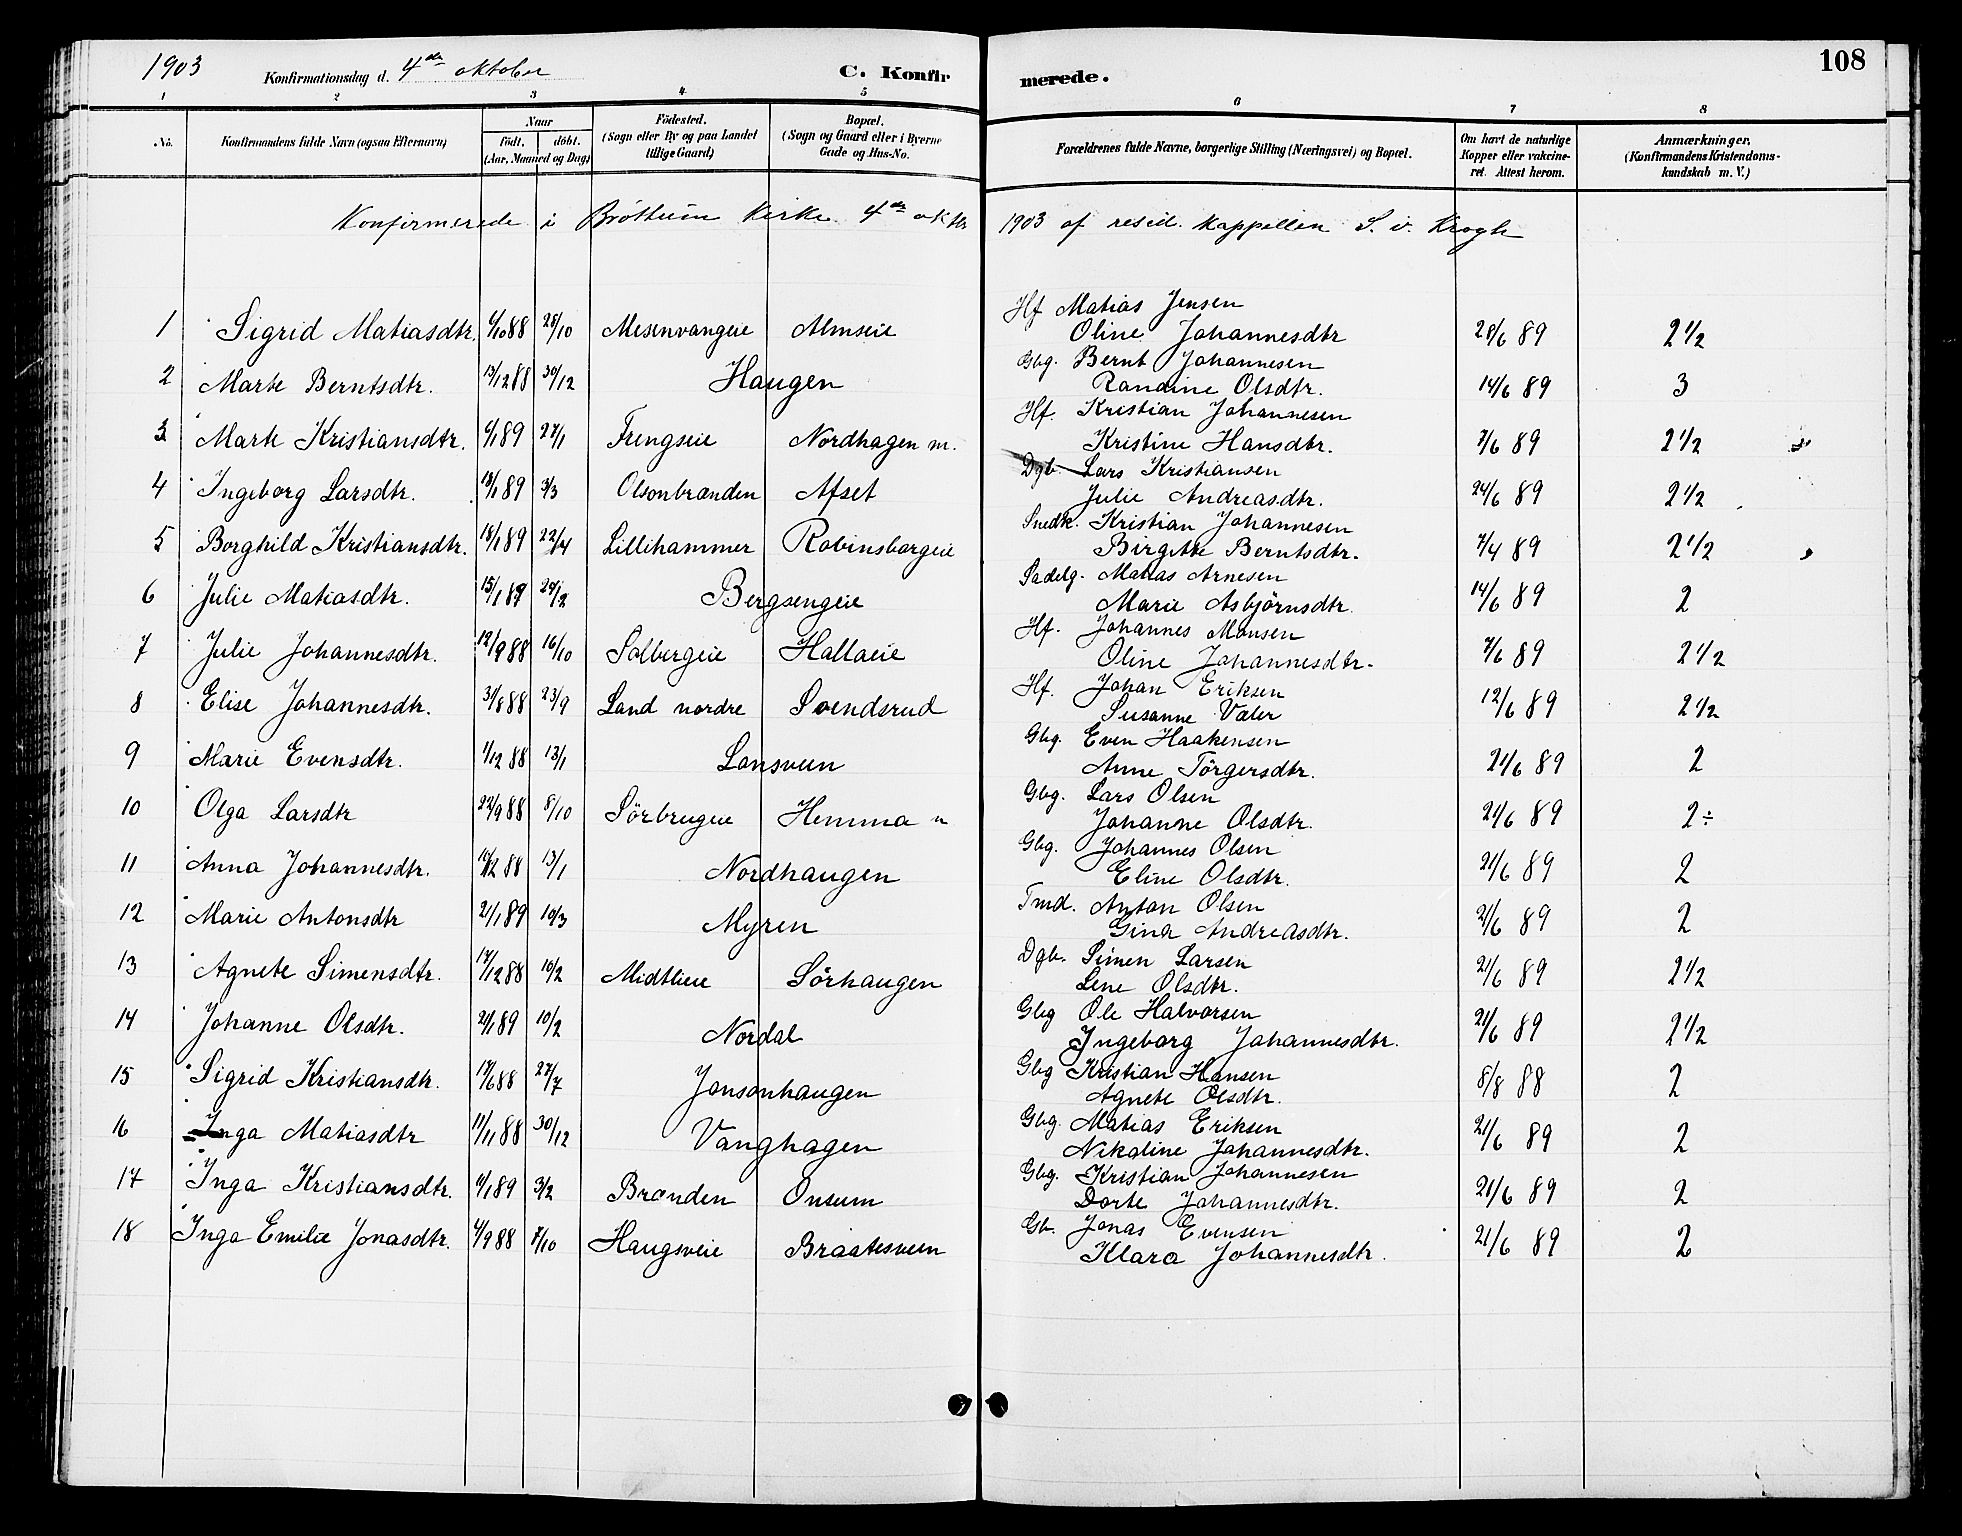 1903 Konfirmationsdag d. 4de oktober C. Konfirmerede. 108
1 2 3 4 5 6 7 8
No. Konfirmandens fulde Navn (ogsaa Efternavn) Naar født. døbt. (Aar, Maaned og Dag) Fødested. (Sogn eller By og paa Landet tillige Gaard) Bopæl. (Sogn og Gaard eller i Byerne Gade og Hus-No. Forældrenes fulde Navne, borgerlige Stilling (Næringsvei) og Bopæl. Om havt de naturlige Kopper eller vakcineret. Attest herom. Anmærkninger. (Konfirmandens Kristendomskundskab m. V.)
Konfirmerede i Brøttum Kirke 4de oktbr 1903 af resid. kappellan S. v. Krogh
1 Sigrid Matiasdtr. 88 28/10 Mesenvangeie Almseie Hf Matias Jensen
Oline Johannesdtr 28/6 89 2 1/2
2 Marte Berntsdtr. 13/12 88 30/12 Haugen Gbg. Bernt Johannesen
Randine Olsdtr. 14/6 89 3
3 Marte Kristiansdtr. 6/1 89 27/1 Frengseie Nordhagen m. Hf. Kristian Johannesen
Kristine Hansdtr. 7/6 89 2 1/2
4 Ingeborg Larsdtr. 13/1 89 3/3 Olsonbrænden Afset Dgb. Lars Kristiansen
Julie Andreasdtr. 24/6 89 2 1/2
5 Borghild Kristiansdtr. 18/1 89 22/4 Lillihammer Robinsborgeie Snedk. Kristian Johannesen
Birgitte Berntsdtr. 7/4 89 2 1/2
6 Julie Matiasdtr. 15/1 89 24/2 Bergsengeie Sadelg. Matias Arnesen
Marie Asbjörnsdtr. 14/6 89 2
7 Julie Johannesdtr. 12/9 88 16/10 Solbergeie Hallaeie Hf. Johannes Monsen
Oline Johannesdtr. 7/6 89 2 1/2
8 Elise Johannesdtr. 31/8 88 23/9 Land nordre Svendsrud Hf. Johan Eriksen
Susanne Valer 12/6 89 2 1/2
9 Marie Evensdtr. 1/12 88 13/1 Lonsveen Gbg. Even Haakensen
Anne Törgersdtr. 21/6 89 2
10 Olga Larsdtr 22/9 88 8/10 Sörbrugeie Hemma n Gbg. Lars Olsen
Johanne Olsdtr. 21/6 89 2÷
11 Anna Johannesdtr. 88 13/1 Nordhaugen Gbg. Johannes Olsen
Eline Olsdtr. 21/6 89 2
12 Marie Antonsdtr 21/1 89 10/3 Myren Tmd. Anton Olsen
Gina Andreasdtr. 21/6 89 2
13 Agnete Simensdtr. 17/12 88 10/2 Midtlieie Sörhaugen Dgb. Simen Larsen
Lene Olsdtr. 21/6 89 2 1/2
14 Johanne Olsdtr. 21/1 89 10/2 Nordal Gbg Ole Halvorsen
Ingeborg Johannesdtr. 21/6 89 2 1/2
15 Sigrid Kristiansdtr. 19/6 88 27/7 Jonsonhaugen Gbg Kristian Hansen
Agnete Olsdtr. 8/8 88 2
16 Inga Matiasdtr 11/11 88 30/12 Vanghagen Gbg. Matias Eriksen
Nikoline Johannesdtr. 21/6 89 2
17 Inga Kristiansdtr. 89 3/2 Brænden Onsum Gbg. Kristian Johannesen
Dorte Johannesdtr. 21/6 89 2
18 Inga Emilie Jonasdtr. 4/9 88 7/10 Haugsveie Braatesveen Gb. Jonas Evensen
Klara Johannesdtr. 21/6 89 2